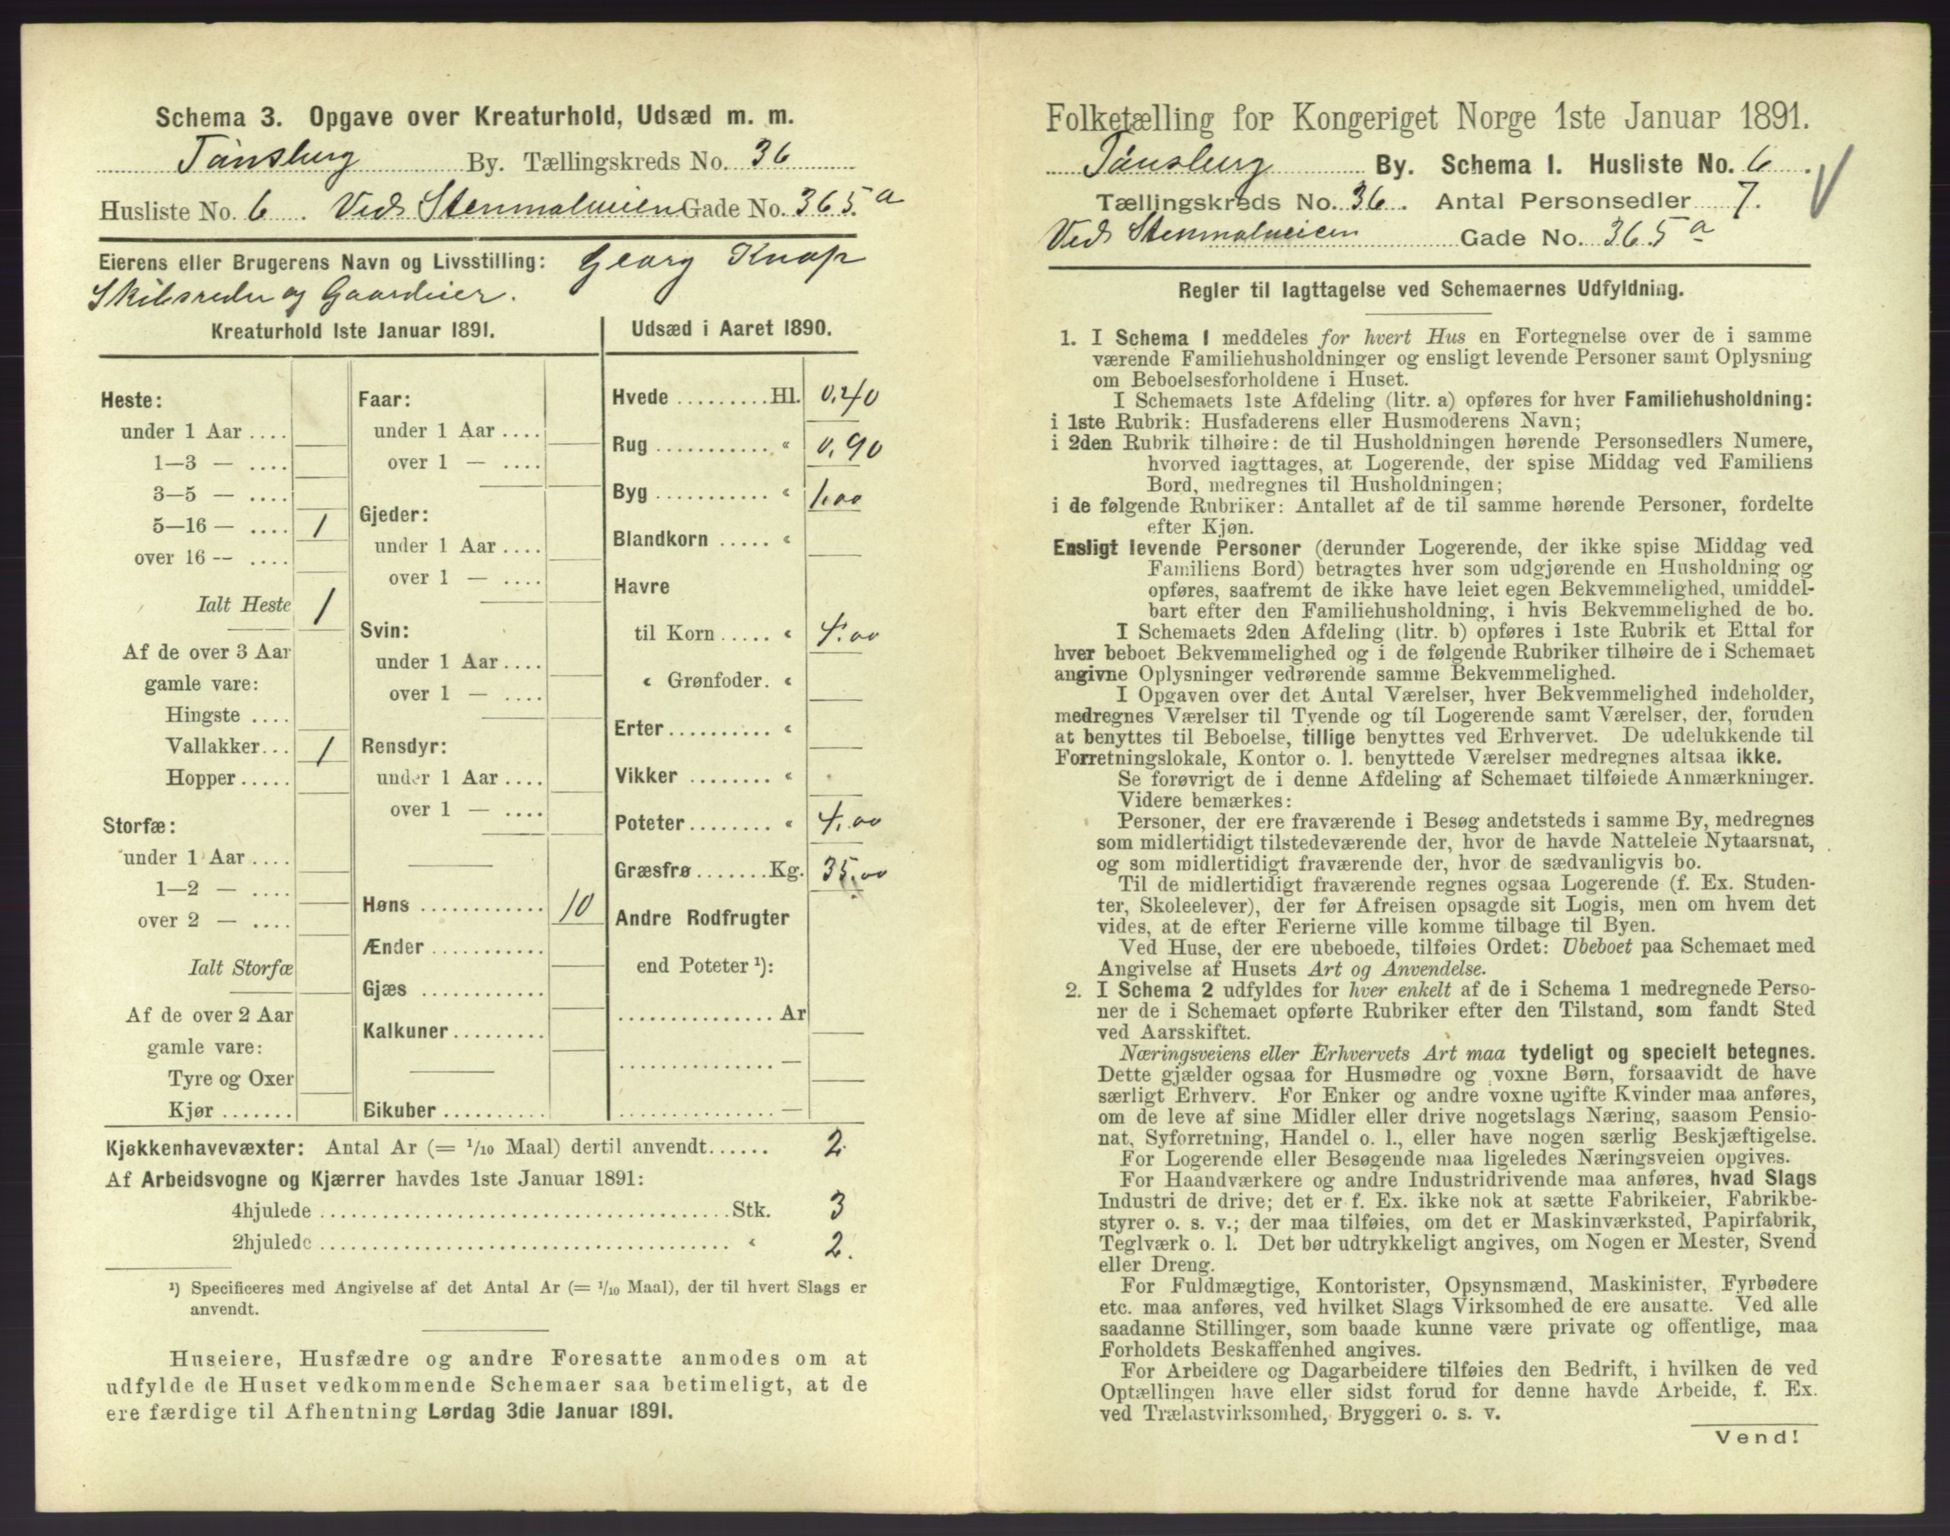 Schema 3. Opgave over Kreaturhold, Udsæd m. m.
Tønsberg By. Tællingskreds No. 36
Husliste No. 6. Ved Stenmalveien Gade No. 365 a
Eierens eller Brugerens Navn og Livsstilling: Georg Knap
Skibsreder og Gaardeier.
Kreaturhold 1ste Januar 1891.
Heste:
under 1 Aar ....
1—3 — ....
3—5 — ....
5—16 — .... 1
over 16 — ....
Ialt Heste 1
Af de over 3 Aar
gamle vare:
Hingste ....
Vallakker... 1
Hopper.....
Storfæ:
under 1 Aar ....
1—2 — ....
over 2 — ....
Ialt Storfæ
Af de over 2 Aar
gamle vare:
Tyre og Oxer
Kjør.......
Faar:
under 1 Aar ....
over 1 — ....
Gjeder:
under 1 Aar ....
over 1 — ....
Svin:
under 1 Aar ....
over 1 — ....
Rensdyr:
under 1 Aar ....
over 1 — ....
Høns ............ 10
Ænder ...........
Gjæs ............
Kalkuner.........
Bikuber ..........
Udsæd i Aaret 1890.
Hvede .........Hl. 0.40
Rug ........... « 0.90
Byg ............ « 1.00
Blandkorn ..... «
Havre
til Korn ..... « 4.00
« Grønfoder. «
Erter .......... «
Vikker ........ «
Poteter........ « 4.00
Græsfrø .......Kg. 35.00
Andre Rodfrugter
end Poteter ¹):
............... Ar
............... —
............... —
Kjøkkenhavevæxter: Antal Ar (= 1/10 Maal) dertil anvendt...... 2
Af Arbeidsvogne og Kjærrer havdes 1ste Januar 1891:
4hjulede ........................................Stk. 3
2hjulede ........................................ « 2.
¹) Specificeres med Angivelse af det Antal Ar (= 1/10 Maal), der til hvert Slags er
anvendt.
Huseiere, Husfædre og andre Foresatte anmodes om at
udfylde de Huset vedkommende Schemaer saa betimeligt, at de
ere færdige til Afhentning Lørdag 3die Januar 1891.
Folketælling for Kongeriget Norge 1ste Januar 1891.
Tønsberg By. Schema I. Husliste No. 6.
Tællingskreds No. 36. Antal Personsedler 7.
Ved Stenmalveien Gade No. 365 a
Regler til Iagttagelse ved Schemaernes Udfyldning.
1. I Schema 1 meddeles for hvert Hus en Fortegnelse over de i samme
værende Familiehusholdninger og ensligt levende Personer samt Oplysning
om Beboelsesforholdene i Huset.
I Schemaets 1ste Afdeling (litr. a) opføres for hver Familiehusholdning:
i 1ste Rubrik: Husfaderens eller Husmoderens Navn;
i 2den Rubrik tilhøire: de til Husholdningen hørende Personsedlers Numere,
hvorved iagttages, at Logerende, der spise Middag ved Familiens
Bord, medregnes til Husholdningen;
i de følgende Rubriker: Antallet af de til samme hørende Personer, fordelte
efter Kjøn.
Ensligt levende Personer (derunder Logerende, der ikke spise Middag ved
Familiens Bord) betragtes hver som udgjørende en Husholdning og
opføres, saafremt de ikke have leiet egen Bekvemmelighed, umiddel-
bart efter den Familiehusholdning, i hvis Bekvemmelighed de bo.
I Schemaets 2den Afdeling (litr. b) opføres i 1ste Rubrik et Ettal for
hver beboet Bekvemmelighed og i de følgende Rubriker tilhøire de i Schemaet
angivne Oplysninger vedrørende samme Bekvemmelighed.
I Opgaven over det Antal Værelser, hver Bekvemmelighed indeholder,
medregnes Værelser til Tyende og til Logerende samt Værelser, der, foruden
at benyttes til Beboelse, tillige benyttes ved Erhvervet. De udelukkende til
Forretningslokale, Kontor o. l. benyttede Værelser medregnes altsaa ikke.
Se forøvrigt de i denne Afdeling af Schemaet tilføiede Anmærkninger.
Videre bemærkes:
Personer, der ere fraværende i Besøg andetsteds i samme By, medregnes
som midlertidigt tilstedeværende der, hvor de havde Natteleie Nytaarsnat,
og som midlertidigt fraværende der, hvor de sædvanligvis bo.
Til de midlertidigt fraværende regnes ogsaa Logerende (f. Ex. Studen-
ter, Skoleelever), der før Afreisen opsagde sit Logis, men om hvem det
vides, at de efter Ferierne ville komme tilbage til Byen.
Ved Huse, der ere ubeboede, tilføies Ordet: Ubeboet paa Schemaet med
Angivelse af Husets Art og Anvendelse.
2. I Schema 2 udfyldes for hver enkelt af de i Schema 1 medregnede Perso-
ner de i Schemaet opførte Rubriker efter den Tilstand, som fandt Sted
ved Aarsskiftet.
Næringsveiens eller Erhvervets Art maa tydeligt og specielt betegnes.
Dette gjælder ogsaa for Husmødre og voxne Børn, forsaavidt de have
særligt Erhverv. For Enker og andre voxne ugifte Kvinder maa anføres,
om de leve af sine Midler eller drive nogetslags Næring, saasom Pensio-
nat, Syforretning, Handel o. l., eller have nogen særlig Beskjæftigelse.
For Logerende eller Besøgende maa ligeledes Næringsveien opgives.
For Haandværkere og andre Industridrivende maa anføres, hvad Slags
Industri de drive; det er f. Ex. ikke nok at sætte Fabrikeier, Fabrikbe-
styrer o. s. v.; der maa tilføies, om det er Maskinværksted, Papirfabrik,
Teglværk o. l. Det bør udtrykkeligt angives, om Nogen er Mester, Svend
eller Dreng.
For Fuldmægtige, Kontorister, Opsynsmænd, Maskinister, Fyrbødere
etc. maa anføres, ved hvilket Slags Virksomhed de ere ansatte. Ved alle
saadanne Stillinger, som baade kunne være private og offentlige, maa
Forholdets Beskaffenhed angives.
For Arbeidere og Dagarbeidere tilføies den Bedrift, i hvilken de ved
Optællingen have eller sidst forud for denne havde Arbeide, f. Ex.
ved Trælastvirksomhed, Bryggeri o. s. v.
Vend!